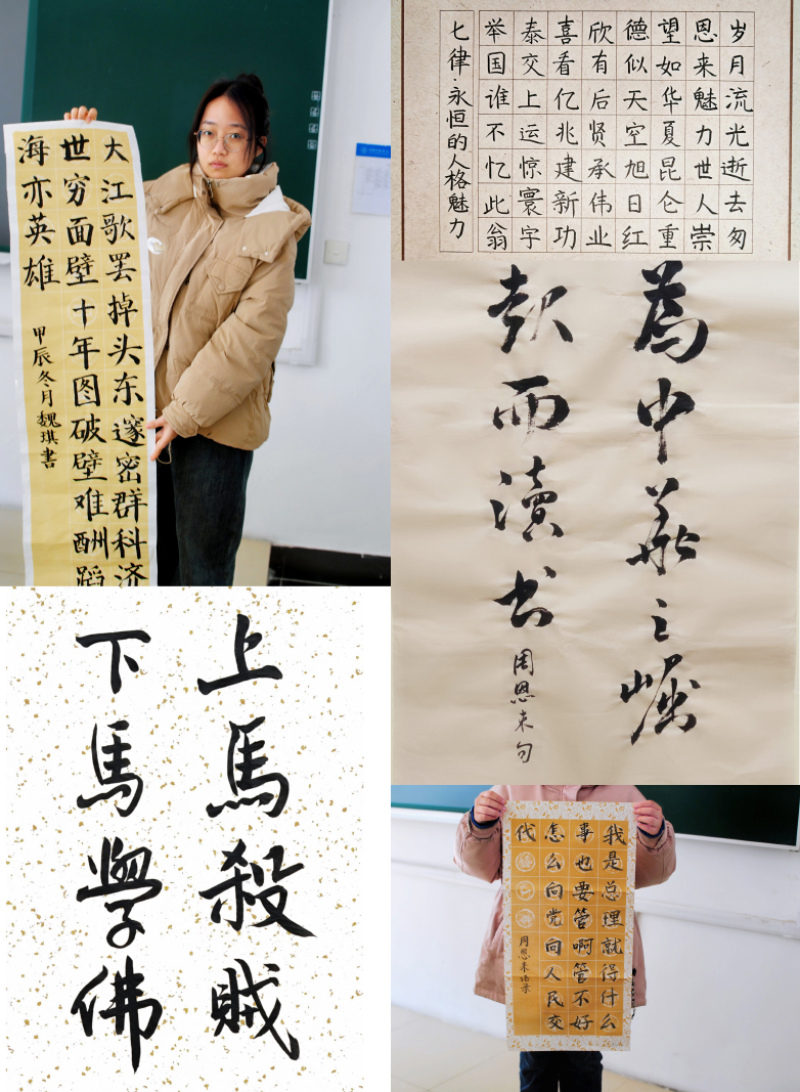 大江歌罢掉头东邃密群科济
世穷面壁十年图破壁难酬蹈
海亦英雄
甲辰冬月魏琪書
岁月流光逝去匆
思来魅力世人崇
望如华夏昆仑重
德似天空旭日红
欣有后贤承伟业
喜看亿兆建新功
泰交上运惊寰宇
举国谁不忆此翁
七律·永恒的人格魅力
為中華之崛
起而讀书
周恩来句
上馬殺賊
下馬學佛
我是总理就得什么
事也要管啊管不好
怎么向党向人民交
代
周恩来语录